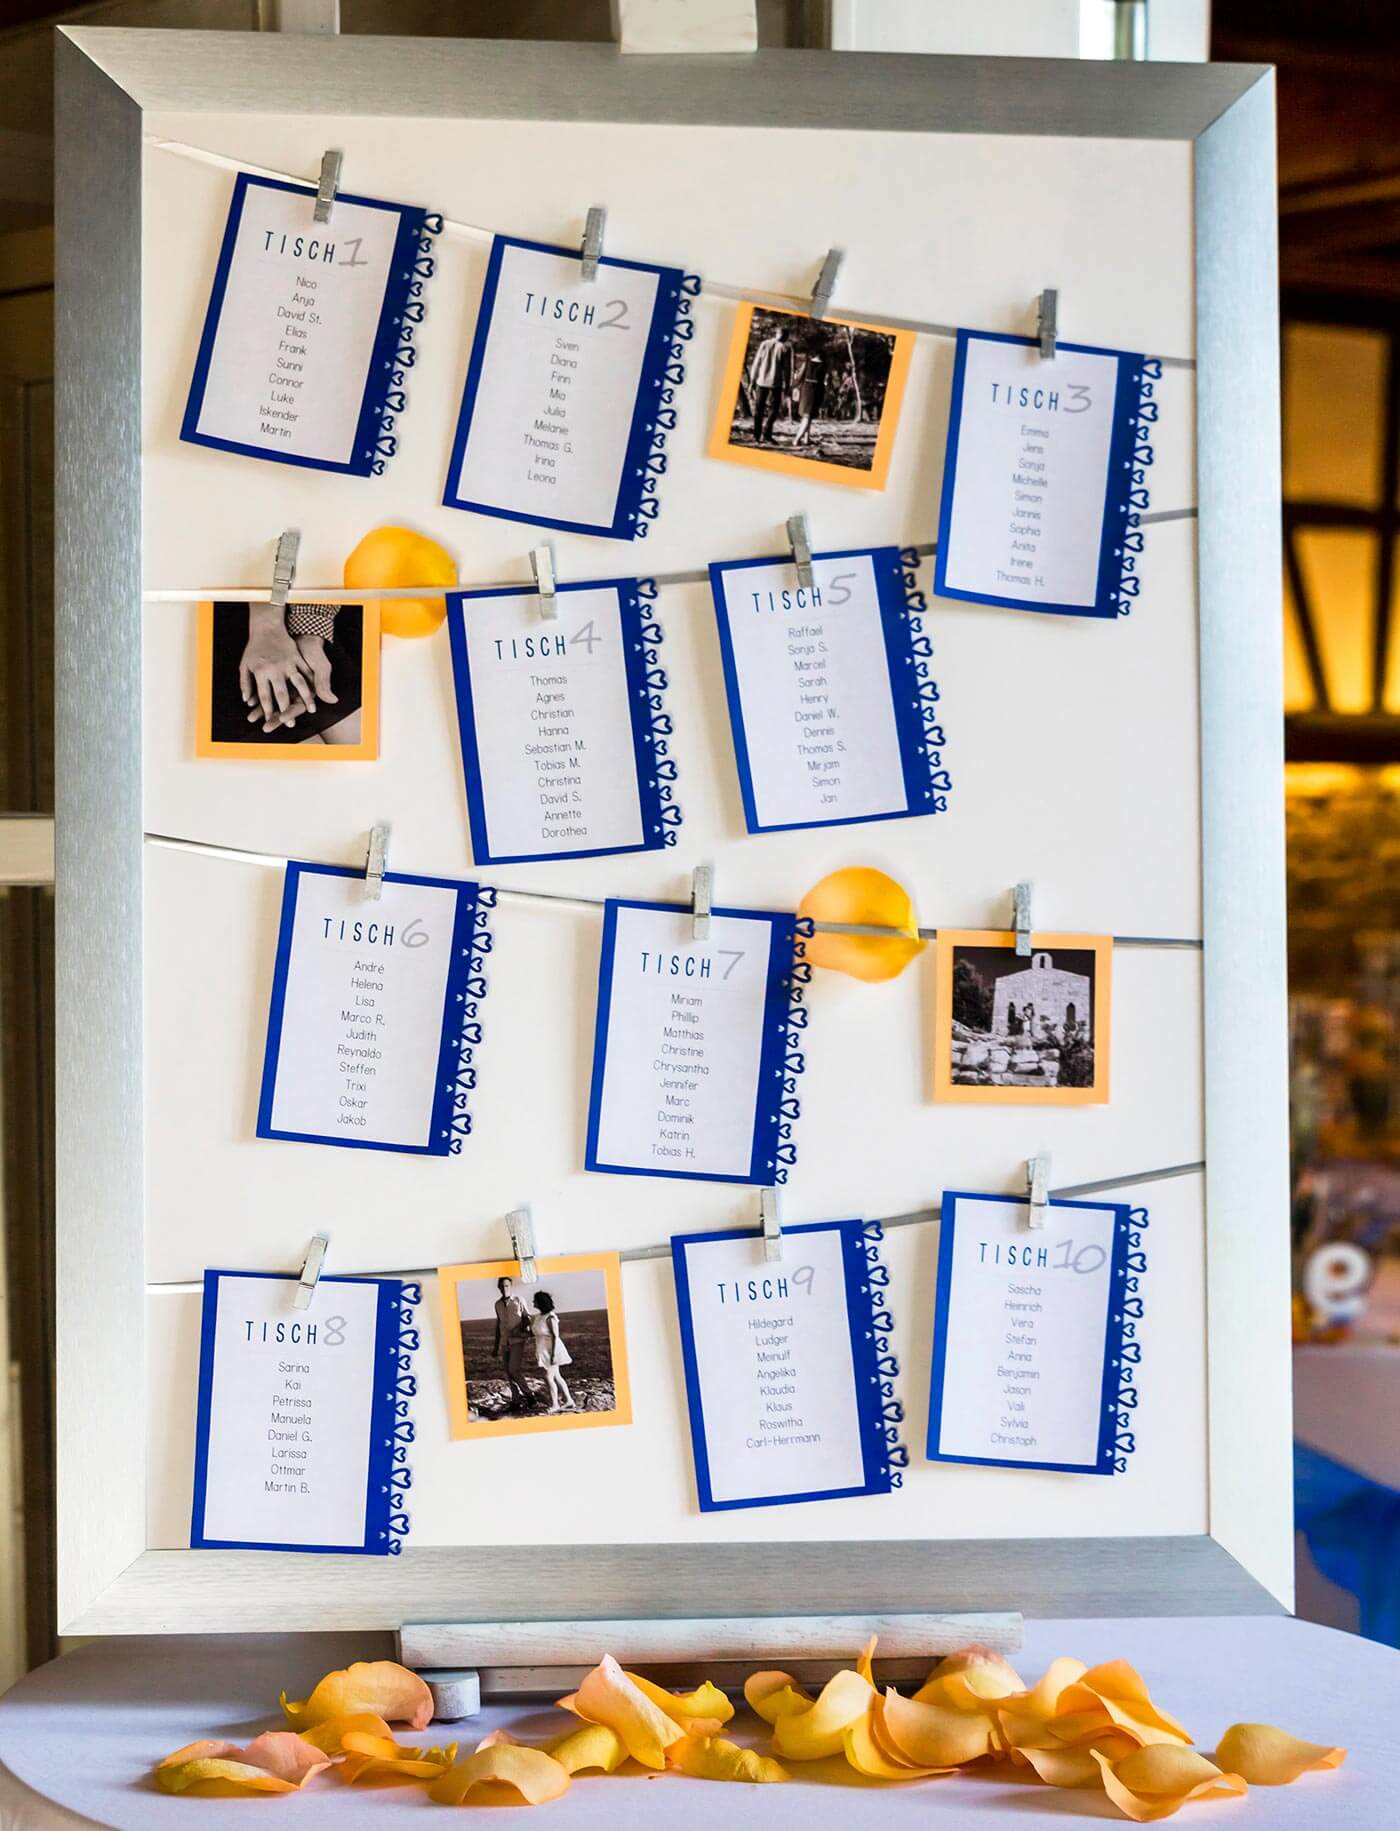 TISCH 1
Nico
Anja
David St.
Elias
Frank
Sunni
Connor
Luke
Iskender
Martin
TISCH 2
Sven
Diana
Finn
Mia
Julia
Melanie
Thomas G.
Irina
Leona
TISCH 3
Emma
Jens
Sonja
Michelle
Simon
Jannis
Sophia
Anita
Irene
Thomas H.
TISCH 4
Thomas
Agnes
Christian
Hanna
Sebastian M.
Tobias M.
Christina
David S.
Annette
Dorothea
TISCH 5
Raffael
Sonja S.
Marcel
Sarah
Henry
Daniel W.
Dennis
Thomas S.
Mirjam
Simon
Jan
TISCH 6
André
Helena
Lisa
Marco R.
Judith
Reynaldo
Steffen
Trixi
Oskar
Jakob
TISCH 7
Miriam
Phillip
Matthias
Christine
Chrysantha
Jennifer
Marc
Dominik
Katrin
Tobias H.
TISCH 8
Sarina
Kai
Petrissa
Manuela
Daniel G.
Larissa
Ottmar
Martin B.
TISCH 9
Hildegard
Ludger
Meinulf
Angelika
Klaudia
Klaus
Roswitha
Carl-Herrmann
TISCH 10
Sascha
Heinrich
Vera
Stefan
Anna
Benjamin
Jason
Vali
Sylvia
Christoph
e